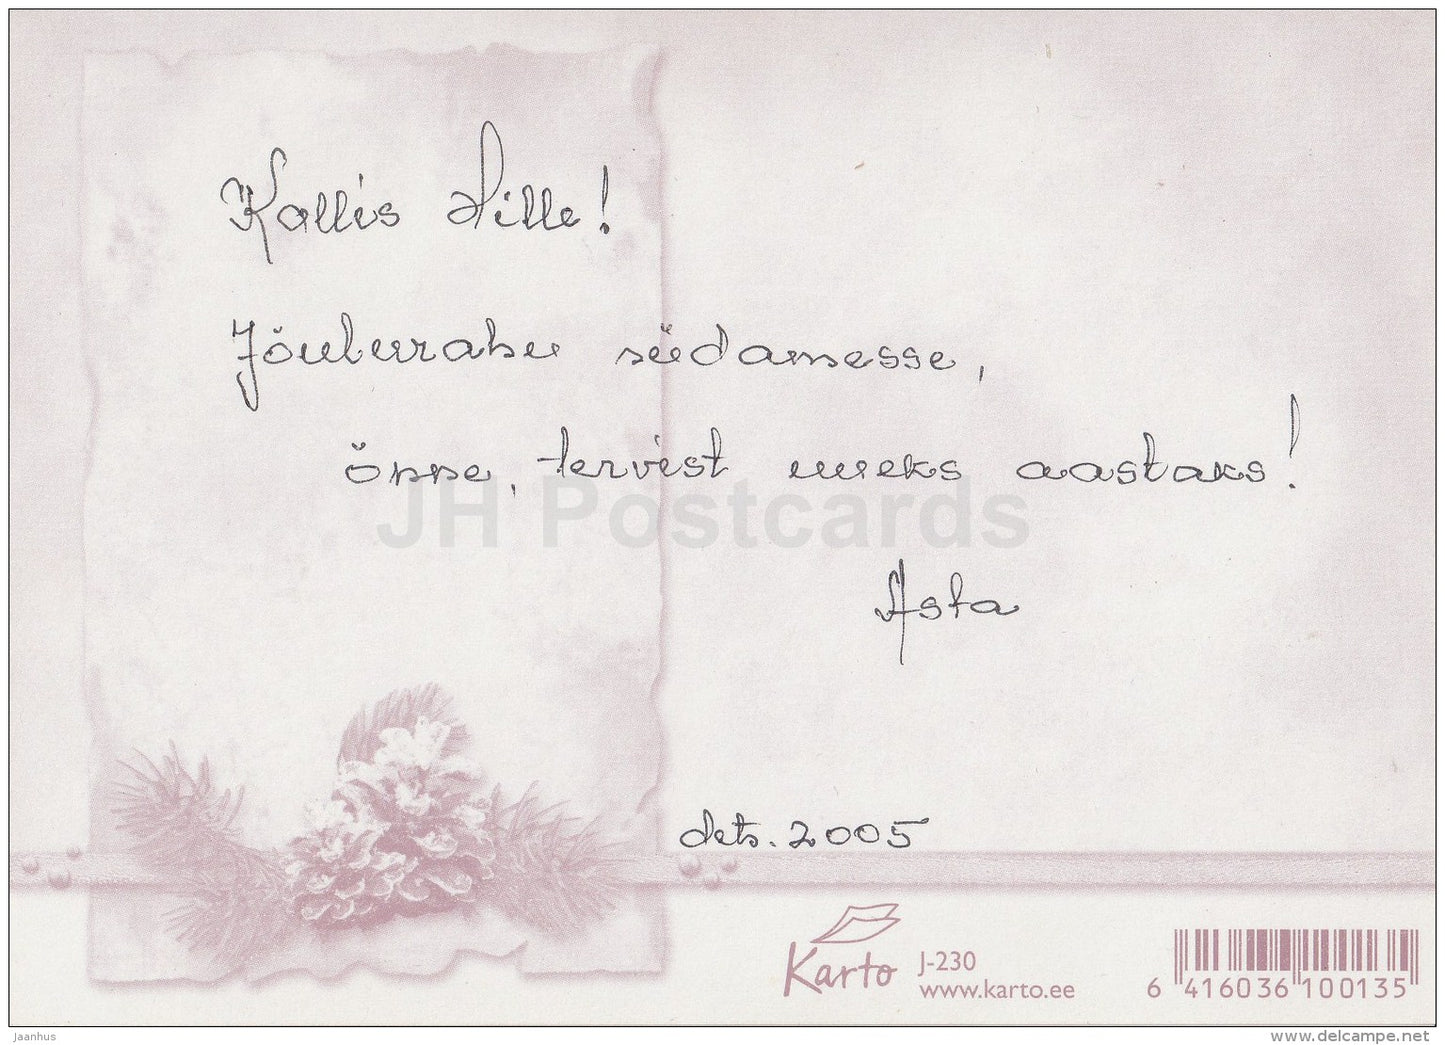 Kallis Sille!
Jõulurahu südamesse,
õnne, tervist uueks aastaks!
JH Postcards
Asta
dets. 2005
Karto
J-230
www.karto.ee
6 416036 100135
jaanhus
www.delcampe.net